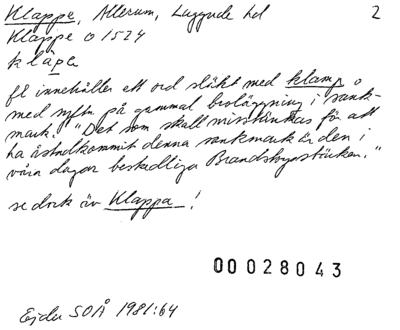 Klappe, Allerum, Luggude hd 2
Klappe o 1524
klapa
fl innehåller ett ord släkt med klamp o
med syftn på gammal beläggning i sank-
mark. "Det som skall misstänkas för att
ha åstadkommit denna sankmark är den i
våra dagar beskedliga Brandsbyastöcken."
se dock äv Klappa!
00028043
Ejder SOÅ 1981:64